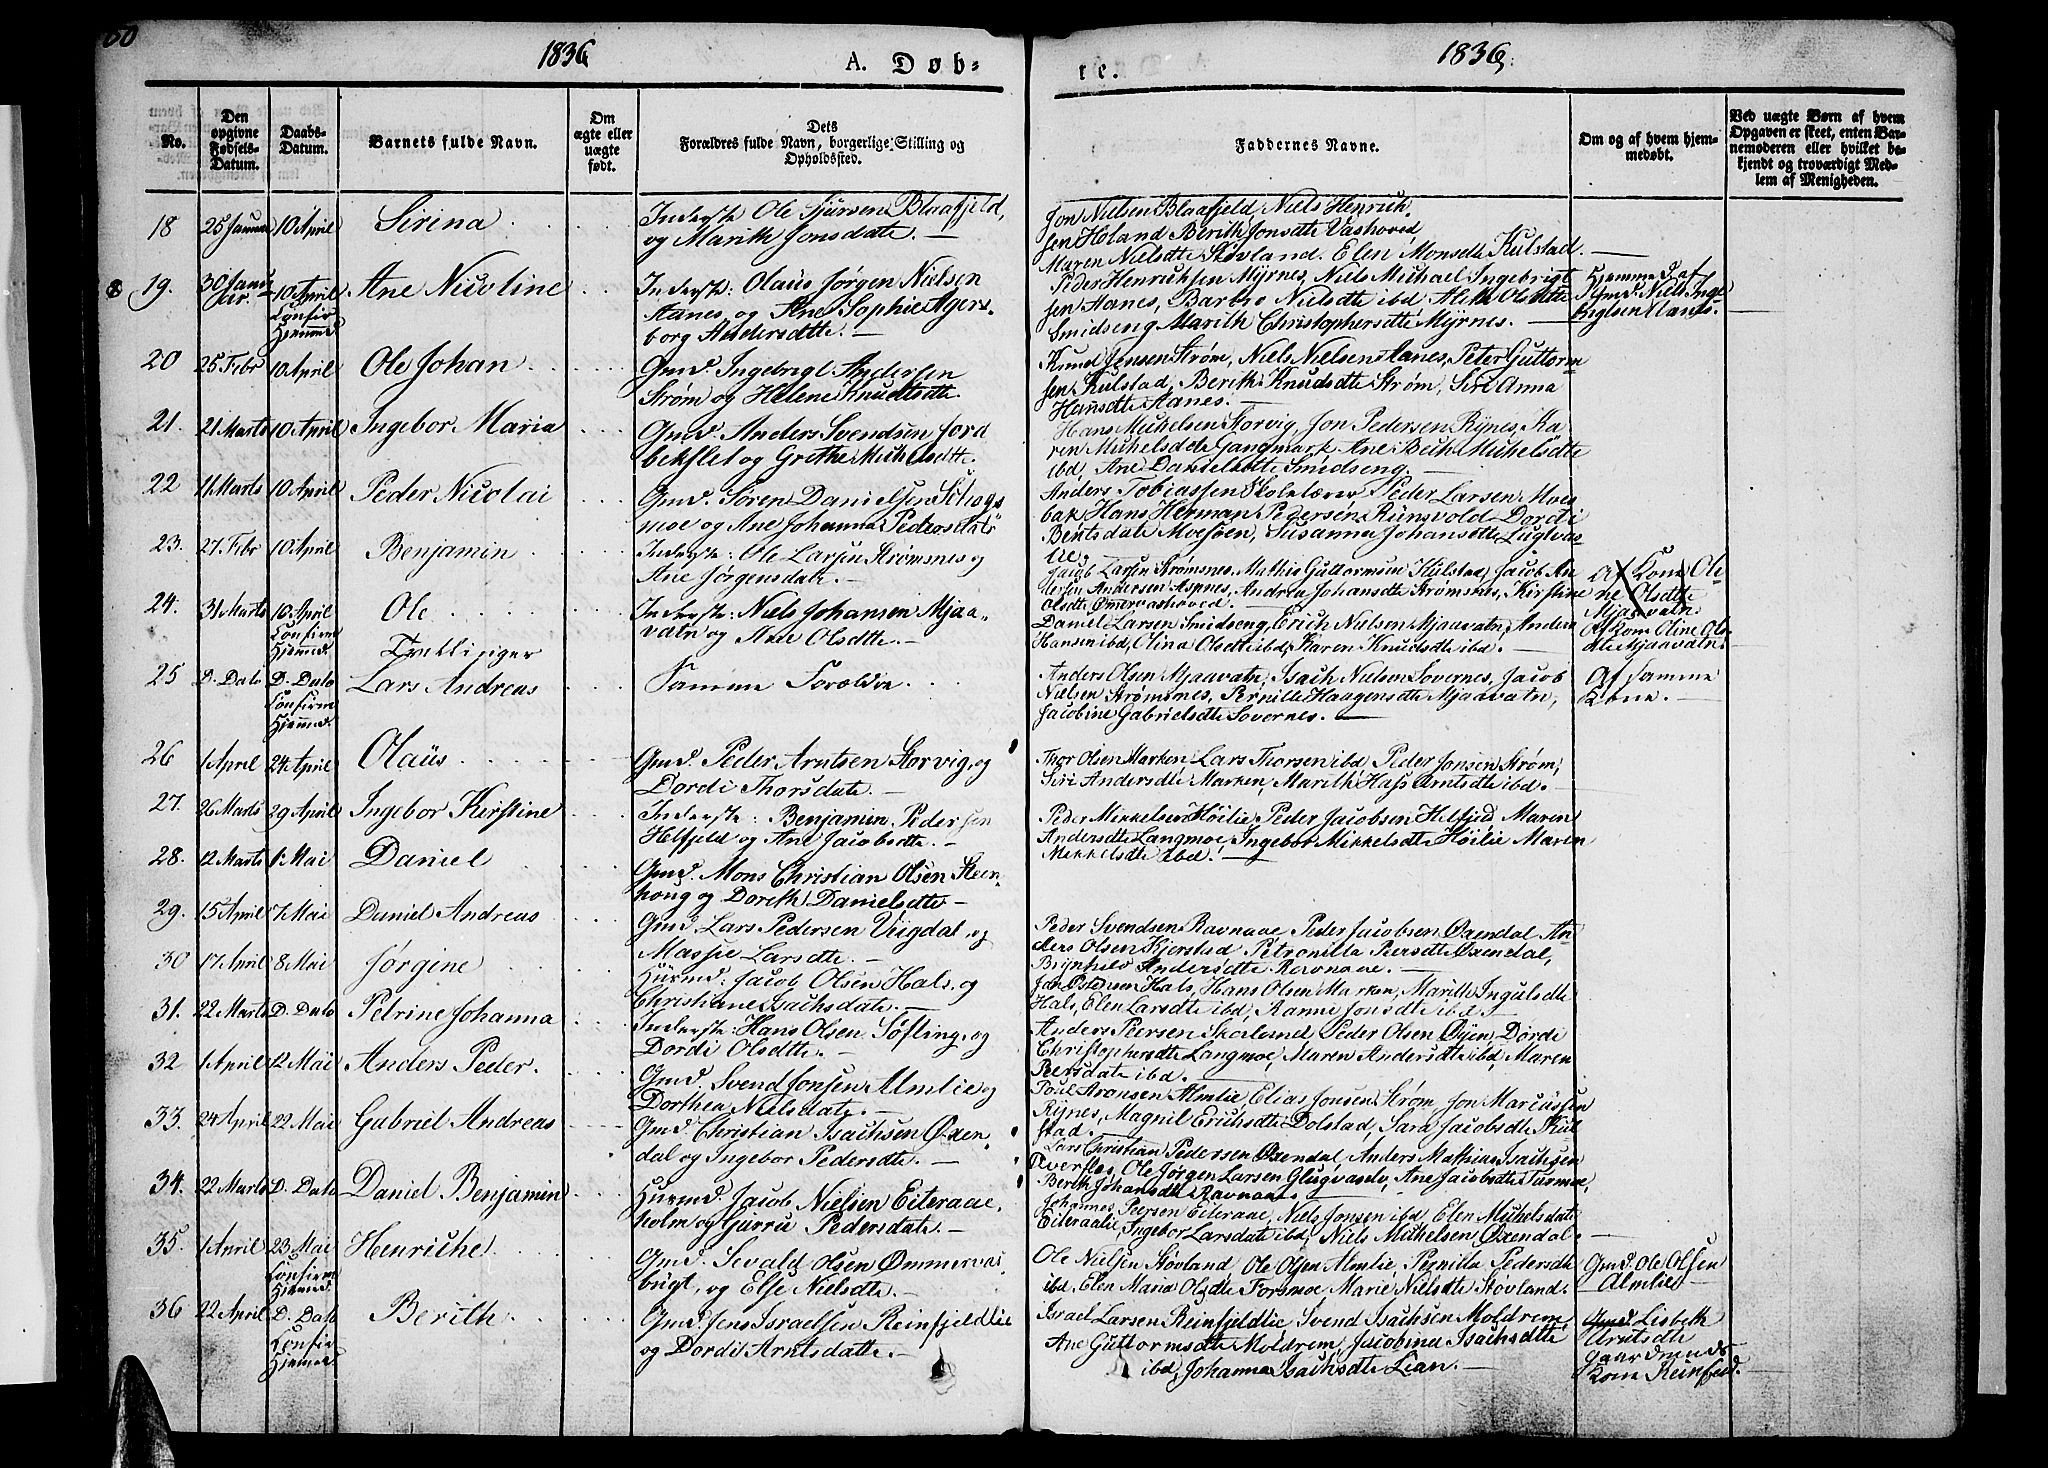 60
1836
A. Døb-
te.
1836
No.
Den opgivne Fødsels-Datum.
Daabs-Datum.
Barnets fulde Navn.
Om ægte eller uægte født.
Dets Forældres fulde Navn, borgerlige Stilling og Opholdssted.
Faddernes Navne.
Om og af hvem hjem-medøbt.
Ved uægte Børn af hvem Opgaven er skeet, enten Bar-nemoderen eller hvilket be-kjendt og troværdigt Med-lem af Menigheden.
18 25 Januar 10 April Sirina
Inderste Ole Sjursen Blaafjeld,
og Marith Jonsdatr.
Jon Nielsen Blaafjeld, Niels Henrich-
sen Holand Berith Jonsdtr Vashoved,
Maren Nielsdtr Støvland. Elen Monsdtr Kulstad.
19. 30 Janu ar. 10 April Confir Hjemmed Ane Nicoline
Inderste: Olaus Jørgen Nielsen
Aanes, og Ane Sophie Agers
borg Andersdtte.
Peder Henrichsen Myrnes, Niels Michael Ingebrigt
sen Aanes, Barbro Nielsdtr ibd Aleth Olsdtte
Smidseng Marith Christophersdtte Myrnes.
Hjemmed af Gmd. Niels Inge
20 25 Febr 10 April Ole Johan
Gmd. Ingebrigt Andersen
Strøm og Helene Knudtsdtte.
Knud Jensen Strøm, Niels Nielsen Aanes, Peter Guttorm
sen Kulstad, Berith Knudsdtte Strøm, Siri Anna
Hansdtte Aanes.
21. 21 Marts 10 April Ingebor Maria
Gmd. Anders Svendsen Jord
bekflet og Grethe Michelsdtte.
Hans Michelsen Storvig, Jon Pedersen Rynes, Ka
ren Michelsdtte Langmark Ane Berith Michelsdtte
ibd Ane Danielsdtte Smidseng.
22 11 Marts 10 April Peder Nicolai
Gmd. Søren Danielsen
moe og Ane Johanna Pedersdatr
Anders Tobiassen Skolelærer Peder Larsen Moes
bak Hans Herman Pedersen Runsvold Dordi
Bentsdatr Mosjøen, Susanna Johansdtte
23. 27 Febr 10 April Benjamin
Inderste: Ole Larsen Strømsnes og
Ane Jørgensdatr.
Jacob Larsen Strømsnes, Mathis Guttormsen Kulstad, Jacob An
dersen Andersen Aspnes, Andrea Johansdtte Strømsnes, Kirstine
Olsdtte Ømervashoved.
Af Kone Ole
ne Olsdtte
Mjaavatn.
24. 31 Marts 10 April Confirm Hjemmed. Ole
Tvillinger
Inderste: Niels Johansen Mjaa-
vatn og Ane Olsdtte.
Daniel Larsen Smidseng, Erich Nielsen Mjaavatn, Anders
Hansen ibd, Olina Olsdtte ibd, Karen Knudsdtte ibd.
Af Kone Oline Ols
dtte Mjaavatn
25 D. Dato D. Dato Confirm Hjemmed. Lars Andreas
Samme Forældre.
Anders Olsen Mjaavatn, Isach Nielsen Sovernes, Jacob
Nielsen Strømsnes, Pernille Haagensdtte Mjaavatn,
Jacobine Gabrielsdtte Sovernes.
Af samme
Kone.
26 1 April 24 April Olaüs
Gmd. Peder Arntsen Storvig, og
Dordi Thorsdatr.
Thor Olsen Marken Lars Thorsen ibd Peder Jonsen Strøm,
Siri Andersdtte Marken, Marith Arntsdtte ibd.
27. 26 Marts 29 April Ingebor Kirstine
Inderste: Benjamin Pedersen
Helfjeld og Ane Jacobsdtte.
Peder Mikkelsen Høilie, Peder Jacobsen Helfjeld Maren
Andersdtte Langmoe, Ingebor Mikkelsdtte Høilie Maren
Mekkelsdtte ibd.
28. 12 Marts 1 Mai Daniel
Gmd. Mons Christian Olsen Stein
houg og Dorith Danielsdtte
29. 15 April 7 Mai Daniel Andreas
Gmd Lars Pedersen Viigdal, og
Massie Larsdtte.
Peder Svendsen Ravnaae Peder Jacobsen Øxendal An
ders Olsen Kjerstad, Petronilla Peersdtte Øxendal,
Brynhild Andersdtte Ravnaae.
30 17 April 8 Mai Jørgine
Huusmd: Jacob Olsen Hals, og
Christiane Isachsdatr.
Jon Hals, Hans Olsen Marken, Marith Ingulsdtte
Hals, Elen Larsdtte ibd, Ranne Jonsdtte ibd
31. 22 Marts D. Dato Petrine Johanna
Inderste: Hans Olsen Søfting, og
Dordi Olsdtte.
Anders Peersen Skorland Peder Olsen Øyen Dordi
Christophersdtte Langmoe, Maren Andersdtte ibd, Maren
Peersdatr ibd.
32 1 April 12 Mai Anders Peder.
Gmd. Svend Jonsen Almlie og
Dorthea Nielsdatr.
Poul Aronsen Almlie Elias Jonsen Strøm Jon Marcussen
Rynes, Magnil Erichsdtte Dolstad, Sara Jacobsdtte Kul
stad.
33. 24 April 22 Mai Gabriel Andreas
Gmd Christian Isachsen Øxen-
dal og Ingebor Pedersdtte.
Lars Christian Pedersen Øxendal, Anders Mathias Isachsen
Øverflos, Ole Jørgen Larsen, Ane Jacobsdtte Turmoe,
Berith Johansdtte Ravnaae
34. 22 Marts D. Dato Daniel Benjamin
Huusmd. Jacob Nielsen Eiteraae
holm og Gurru Pedersdatr.
Johannes Peersen Eiteraae, Niels Jonsen ibd, Elen Michelsdatr
Eiteraalie, Ingebor Larsdatr ibd, Niels Michelsen Øxendal.
35. 1 April 23 Mai Confirm Hjemmed. Henriche
Gmd. Sevald Olsen Ømmervas
bugt, og Else Nielsdtte.
Ole Nielsen Støvland Ole Olsen Almlie, Pernilla Pedersdtr
ibd, Elen Maria Olsdtte Forsmoe, Marie Nielsdtte Støvland.
Gmd. Ole Olsen
Almlie
36 22 April D. Dato Confir Hjemmed. Berith
Gmd. Jens Israelsen Reinfjeldlie
og Dordi Arntsdatte.
Israel Larsen Reinfjeldlie Svend Isachsen Moldrem,
Ane Guttormsdtte Moldrem, Jacobina Isachsdtte
ibd, Johanna Isachsdtte Lian.
Gmd. Lisbeth
Arntsdtte
gaardmands
Kone Reinfjeld.